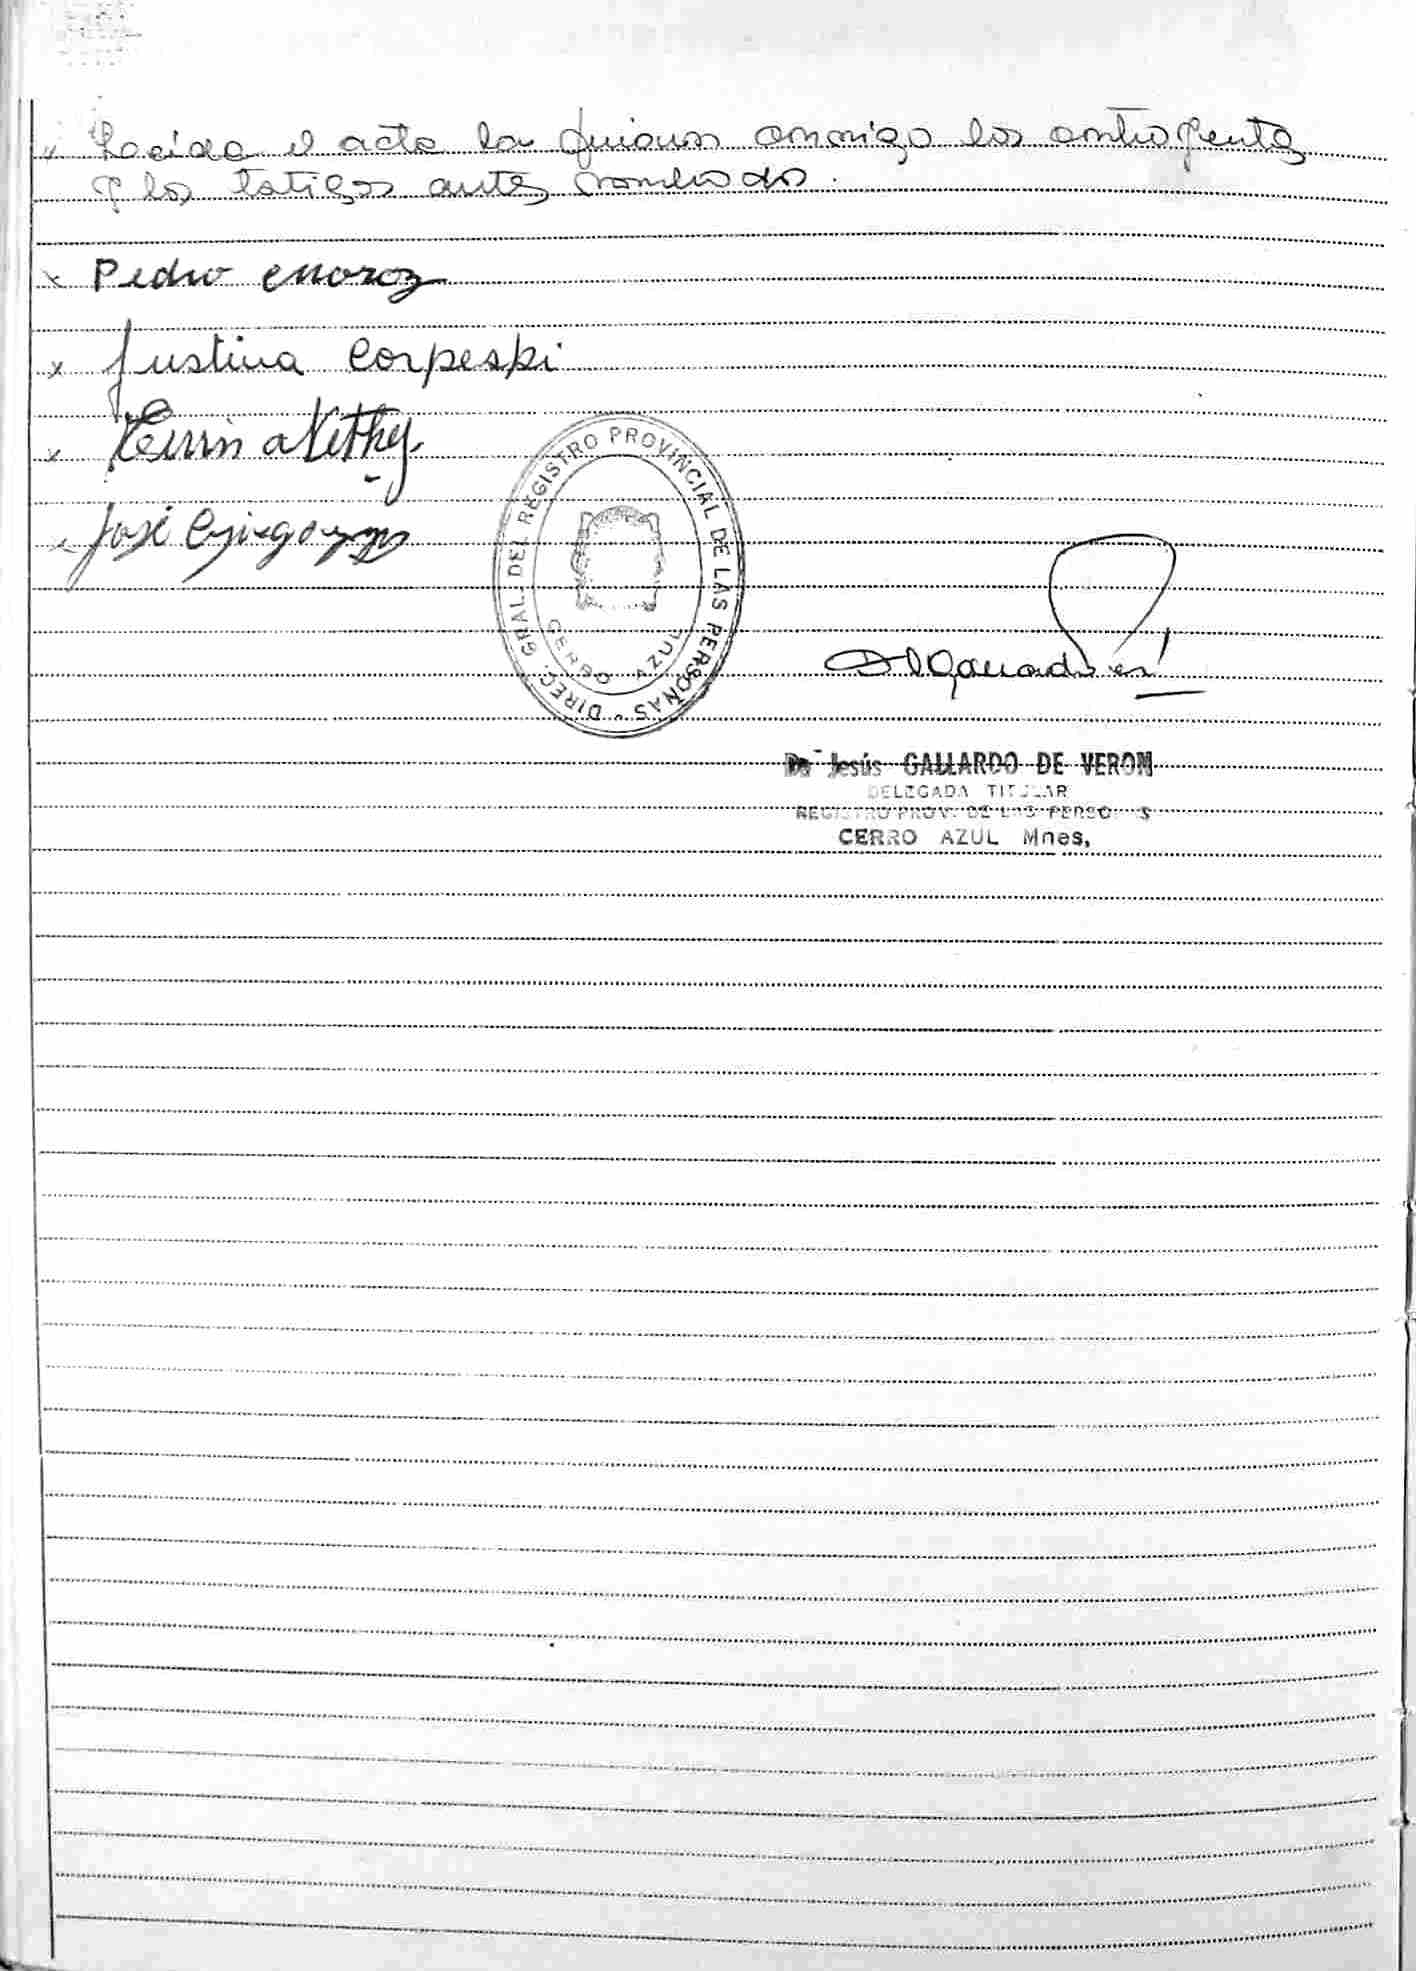 Leída el acta la firman conmigo los contrayentes
y los testigos antes nombrados.
Pedro Moroz
Justina Corpeski
José
DIREC. GRAL. DEL REGISTRO PROVINCIAL DE LAS PERSONAS -
CERRO AZUL
Jesús GALLARDO DE VERON
DELEGADA TITULAR
REGISTRO PROV. DE LAS PERSONAS
CERRO AZUL Mnes.